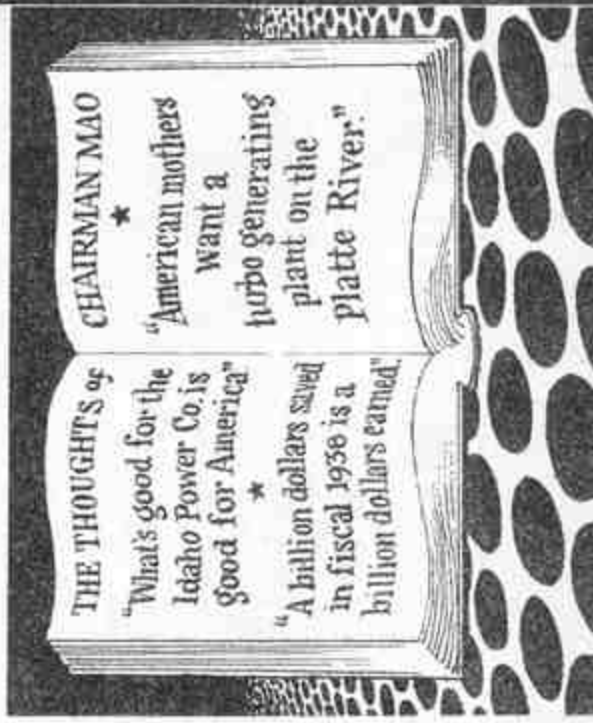 THE THOUGHTS of
"What's good for the
Idaho Power Co. is
good for America"
"A billion dollars saved
in fiscal 1938 is a
billion dollars earned."
CHAIRMAN MAO
"American mothers
want a
turbo generating
plant on the
Platte River."